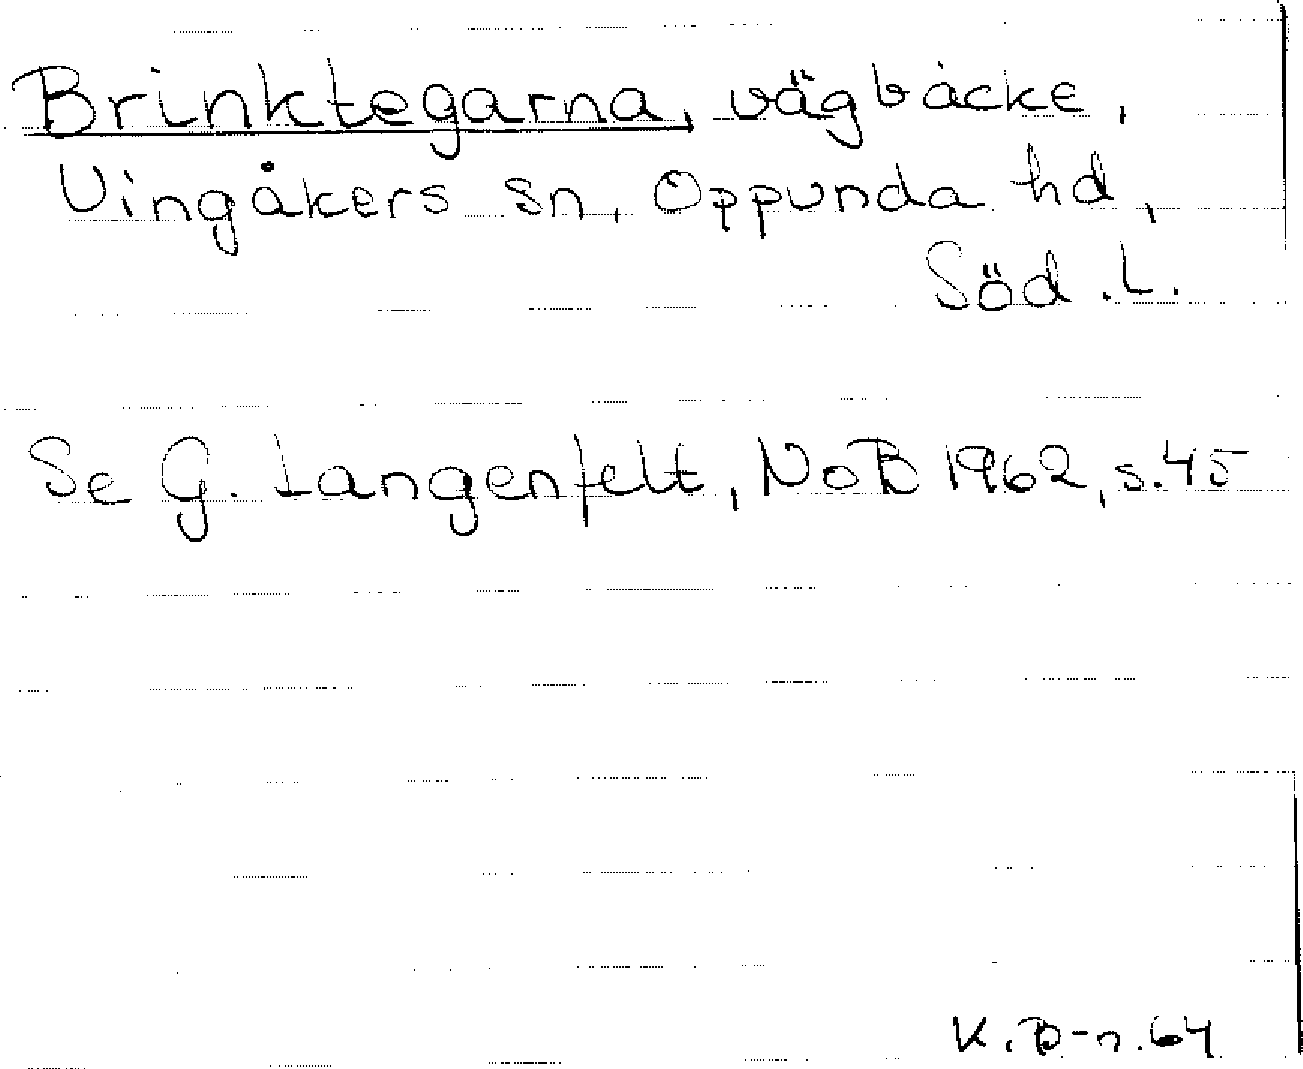 Brinktegarna, vägbacke,
Vingåkers sn, Oppunda hd,
Söd.L.
Se G. Langenfelt, NoB 1962, s.45
K.B-n.64